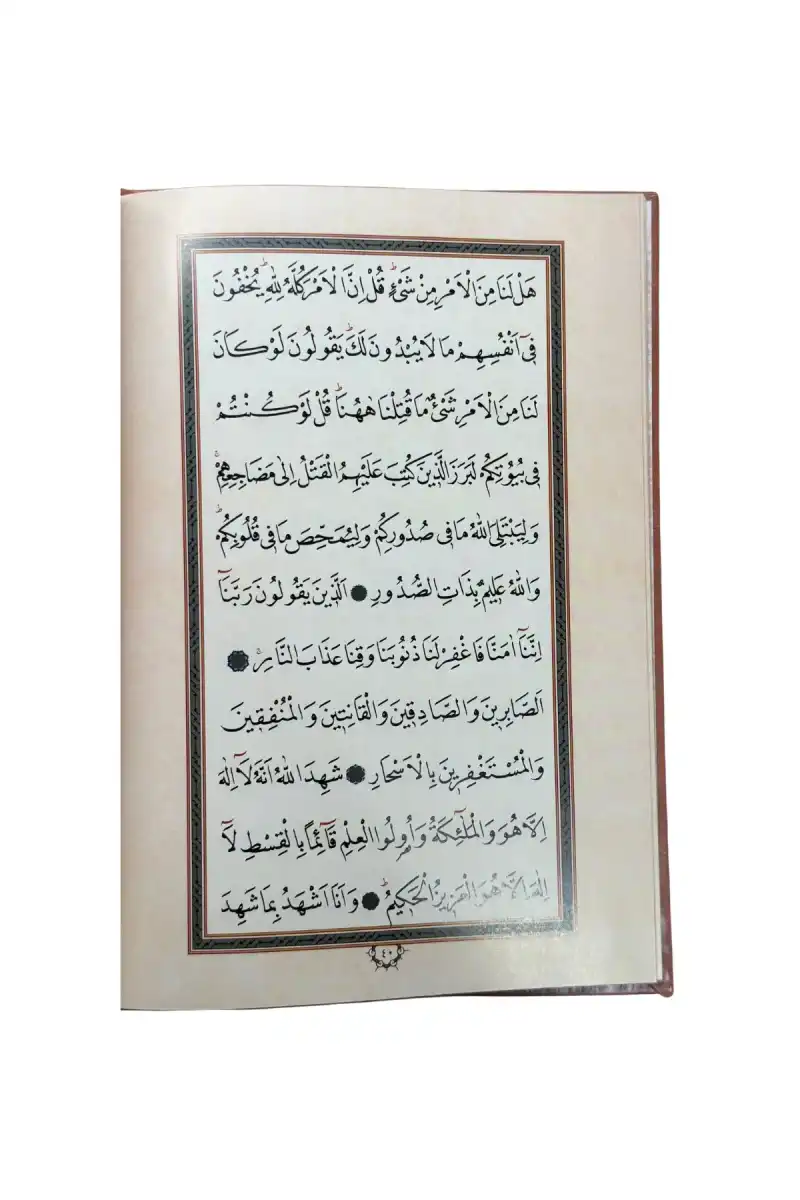 هَلْ لَنَا مِنَ الْاَمْرِ مِنْ شَىْءٍۜ قُلْ اِنَّ الْاَمْرَ كُلَّهُ لِلّٰهِۜ يُخْفُونَ
فِىٓ اَنْفُسِهِمْ مَا لَا يُبْدُونَ لَكَۜ يَقُولُونَ لَوْ كَانَ
لَنَا مِنَ الْاَمْرِ شَىْءٌ مَا قُتِلْنَا هٰهُنَاۜ قُلْ لَوْ كُنْتُمْ
فِى بُيُوتِكُمْ لَبَرَزَ الَّذِينَ كُتِبَ عَلَيْهِمُ الْقَتْلُ اِلٰى مَضَاجِعِهِمْۚ
وَلِيَبْتَلِىَ اللّٰهُ مَا فِى صُدُورِكُمْ وَلِيُمَحِّصَ مَا فِى قُلُوبِكُمْۜ
وَاللّٰهُ عَلِيمٌ بِذَاتِ الصُّدُورِ ۝ اَلَّذِينَ يَقُولُونَ رَبَّنَٓا
اِنَّنَٓا اٰمَنَّا فَاغْفِرْ لَنَا ذُنُوبَنَا وَقِنَا عَذَابَ النَّارِۚ ۝
اَلصَّابِرِينَ وَالصَّادِقِينَ وَالْقَانِتِينَ وَالْمُنْفِقِينَ
وَالْمُسْتَغْفِرِينَ بِالْاَسْحَارِ ۝ شَهِدَ اللّٰهُ اَنَّهُ لَٓا اِلٰهَ
اِلَّا هُوَ وَالْمَلٰٓئِكَةُ وَاُولُوا الْعِلْمِ قَٓائِمًا بِالْقِسْطِ لَٓا
اِلٰهَ اِلَّا هُوَ الْعَزِيزُ الْحَكِيمُۜ ۝ وَاَنَا اَشْهَدُ بِمَا شَهِدَ
٤٠